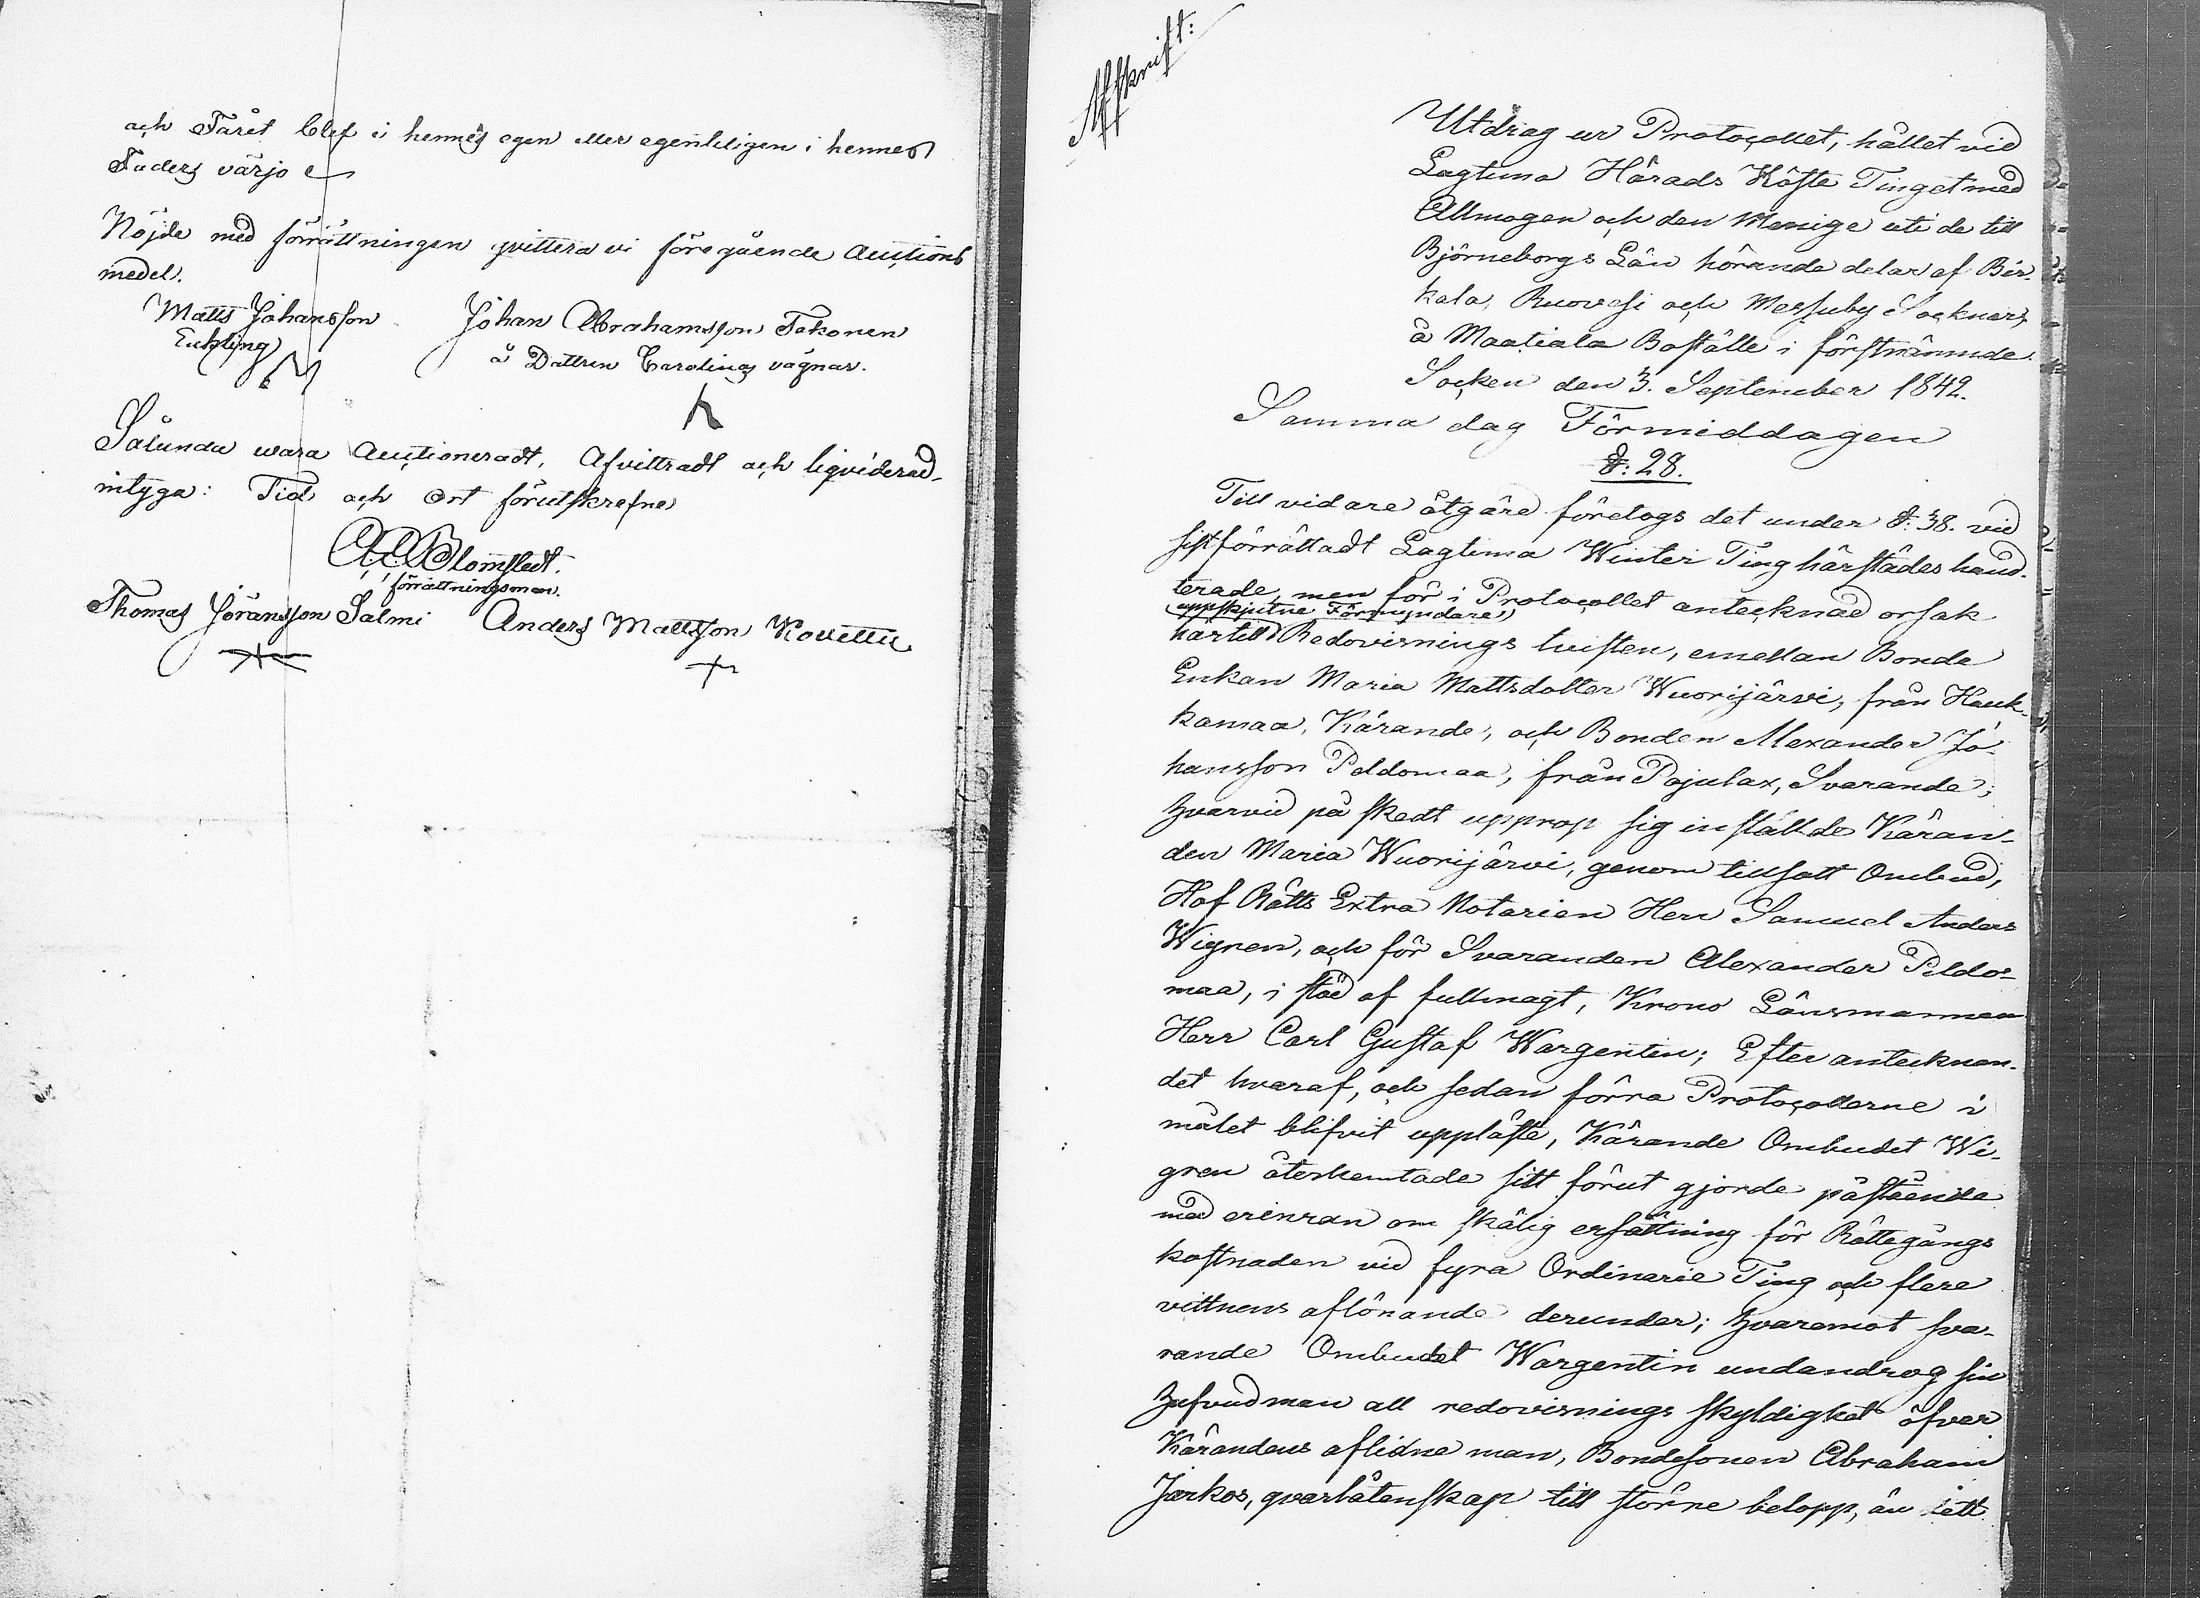 och Fåret blef i hennes egen eller egenteligen i hennes
Faders värjo
Nöjde med förrättningen qvittera vi föregående Auctions
medel.
Matts Johansson Johan Abrahamsson Tekonen
Enkling å Dottren Carolinas vägnar.
Sålunda vara Auctioneradt, Afvittradt och liqviderad
intyga: Tid och Ort förutskrefne
Blomstedt.
förrättningsman.
Thomas Jöransson Salmi Anders Mattsson
Afskrift:
Utdrag ur Protocollet, hållet vid
Lagtima Härads Höste Tinget med
Allmogen och den Menige uti de till
Björneborgs Län hörande delar af Bir-
kala, Ruovesi och Messuby Socknar,
å Maatiala Boställe i förstnämnde
Socken den 3. September 1842.
Samma dag Förmiddagen
§: 28.
Till vidare åtgärd företogs det under §: 38. vid
sist förrättadt Lagtima Winter Ting härstädes hand-
terade, men för i Protocollet antecknad orsak
uppskjutne Förmyndare
härtill Redovisnings tvisten, emellan Bonde
Enkan Maria Mattsdotter Wuorijärvi, från Hauk-
kamaa, Kärande, och Bonden Alexander Jo-
hansson Peldomaa, från Pajulax, Svarande;
hvarvid på skedt upprop sig inställde Käran-
den Maria Wuorijärvi, genom tillsatt Ombud,
Hof Rätts Extra Notarien Herr Samuel Anders
Wigren, och för Svaranden Alexander Peldo-
maa, i stöd af fullmagt, Krono Länsmannen
Herr Carl Gustaf Wargentin; Efter antecknan-
det hvaraf, och sedan förra Protocollerne i
målet blifvit uppläste, Kärande Ombudet Wi-
gren återhemtade sitt förut gjorde påstående
med erinran om skälig ersättning för Rättegångs
kostnaden vid fyra Ordinarie Ting och flere
vittnens aflönande derunder; hvaremot Sva-
rande Ombudet Wargentin undandrog sin
hufvudman all redovisnings skyldighet öfver
Kärandens aflidne man, Bondesonen Abraham
Jarkos, qvarlåtenskap till större belopp, än ett